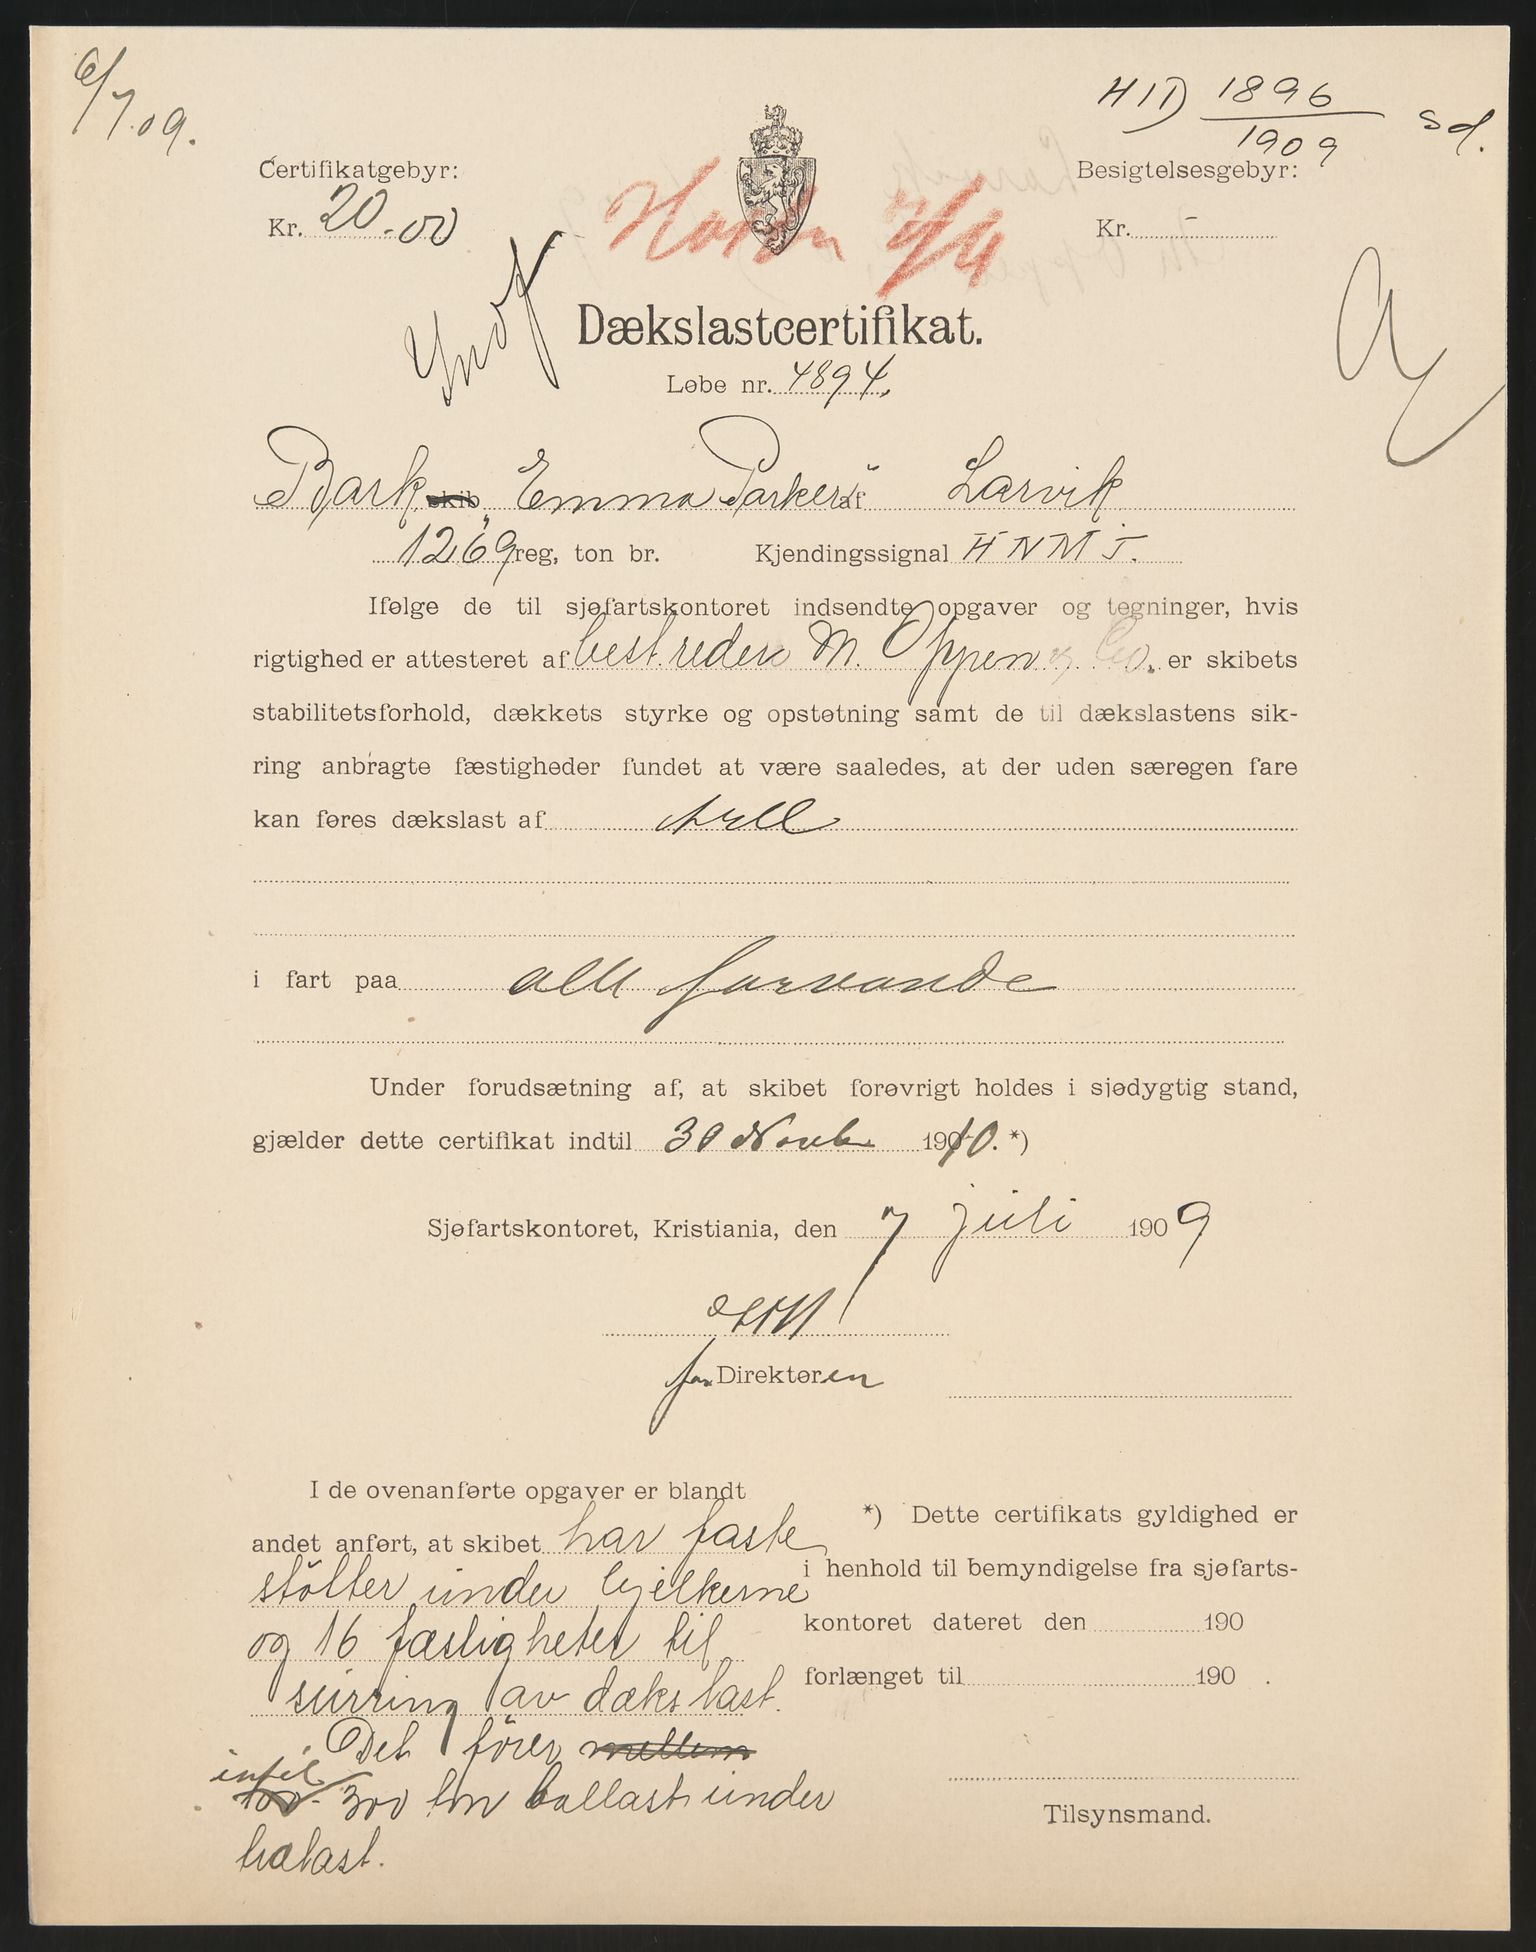 6/7.09.
HID 1896/1909 sd.
Certifikatgebyr:
Besigtelsesgebyr:
Kr. 20.00
Kr. -
Dækslastcertifikat.
Løbe nr. 4894.
Bark skib „Emma Parker“ af Larvik
1269 reg, ton br. Kjendingssignal HNMJ.
Ifølge de til sjøfartskontoret indsendte opgaver og tegninger, hvis
rigtighed er attesteret af best. reder M. Oppen & Co. er skibets
stabilitetsforhold, dækkets styrke og opstøtning samt de til dækslastens sik-
ring anbragte fæstigheder fundet at være saaledes, at der uden særegen fare
kan føres dækslast af træl
i fart paa alle farvande
Under forudsætning af, at skibet forøvrigt holdes i sjødygtig stand,
gjælder dette certifikat indtil 30 Novbr 1910. *)
Sjøfartskontoret, Kristiania, den 7 juli 1909
for Direktøren
I de ovenanførte opgaver er blandt
andet anført, at skibet har faste
støtter under bjelkerne
og 16 fæstigheter til
surring av dækslast.
Det fører mellem
indtil 100- 300 ton ballast under
trælast.
*) Dette certifikats gyldighed er
i henhold til bemyndigelse fra sjøfarts-
kontoret dateret den 190
forlænget til 190 .
Tilsynsmand.